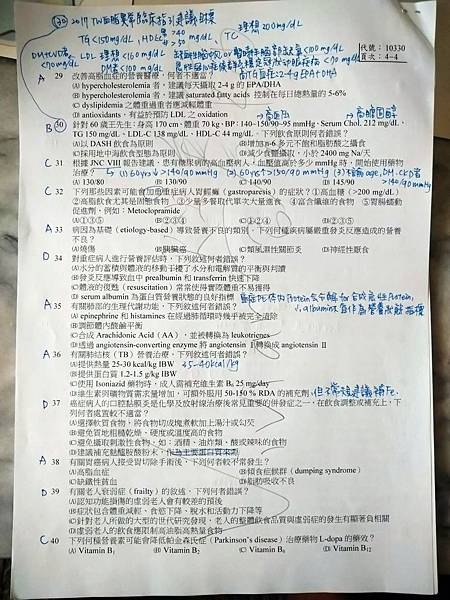 2017 TW血脂異常臨床指引建議目標
TG<150 mg/dL, HDL 男>40 女>50 mg/dL TC 理想 200mg/dL
LDL 理想<160 mg/dL
DM<100 mg/dL
代號：10330
頁次：4-4
A 29 改善高脂血症的營養醫療，何者不適當？
(A)hypercholesterolemia 者，建議每天攝取 2-4 g 的 EPA/DHA
(B)hypercholesterolemia 者，建議 saturated fatty acids 控制在每日總熱量的 5-6%
(C)dyslipidemia 之體重過重者應減輕體重
(D)antioxidants，有益於預防 LDL 之 oxidation
B 30 針對 60 歲王先生：身高 170 cm、體重 70 kg，BP：140-150/90~95 mmHg，Serum Chol. 212 mg/dL、
TG 150 mg/dL、LDL-C 138 mg/dL、HDL-C 44 mg/dL，下列飲食原則何者錯誤？
(A)以 DASH 飲食為原則 (B)增加n-6 多元不飽和脂肪酸之攝食
(C)採用地中海飲食型態為原則 (D)減少食鹽攝取，小於 2400 mg Na/天
C 31 根據 JNC VIII 報告建議，患有糖尿病的高血壓病人，血壓值高於多少 mmHg 時，開始使用藥物
治療？ (1) 60yrs↓>140/90 mmHg (2) 60yrs↑>150/90 mmHg
(A)130/80 (B)130/90 (C)140/90 (D)145/90
C 32 下列那些因素可能會加重糖尿病症病人胃輕癱（gastroparesis）的症狀？①高血糖（>200 mg/dL）
②高脂飲食尤其是固態食物 ③少量多餐取代單次大量進食 ④富含纖維的食物 ⑤胃腸蠕動
促進劑，例如：Metoclopramide
(A)①③⑤ (B)②③⑤ (C)①②④ (D)②③④
A 33 病因為基礎（etiology-based）導致營養不良的類別，下列何種疾病屬嚴重發炎反應造成的營養
不良？
(A)燒傷 (B)胰臟癌 (C)類風濕性關節炎 (D)神經性厭食
D 34 對重症病人進行營養評估時，下列敘述何者錯誤？
(A)水分的蓄積與體液的移動干擾了水分和電解質的平衡與判讀
(B)發炎反應導致血中 prealbumin 和 transferrin 快速下降
(C)體液的復甦（resuscitation）常常使得實際體重不易獲得
(D)serum albumin 為蛋白質營養狀態的良好指標
A 35 有關肺部的生理代謝功能，下列敘述何者錯誤？
(A)epinephrine 和 histamine 在經過肺循環時幾乎被完全清除
(B)調節體內酸鹼平衡
(C)合成 Arachidonic Acid（AA），並被轉換為 leukotrienes
(D)透過 angiotensin-converting enzyme 將 angiotensin Ⅰ轉換成 angiotensin Ⅱ
A 36 有關肺結核（TB）營養治療，下列敘述何者錯誤？
(A)提供熱量 25-30 kcal/kg IBW 35-40kcal/kg
(B)提供蛋白質 1.2-1.5 g/kg IBW
(C)使用 Isoniazid 藥物時，成人需補充維生素 B₆ 25 mg/day
(D)維生素與礦物質需求量增加，可額外服用 50-150 % RDA 的補充劑
D 37 癌症病人的口腔黏膜炎是化學及放射線治療後常見重要的併發症之一，在飲食調整或補充上，下
列何者處置較不適當？
(A)選擇軟質食物，將食物切成塊煮軟加上湯汁或勾芡
(B)避免質地粗糙乾燥、硬度或溫度高的食物
(C)避免攝取刺激性食物，如：酒精、油炸類、酸或辣味的食物
(D)建議補充麩醯胺酸粉末，作為主要蛋白質來源
A 38 有關胃癌病人接受胃切除手術後，下列何者較不常發生？
(A)高脂血症 (B)傾食症候群（dumping syndrome）
(C)缺鐵性貧血 (D)脂肪吸收不良
D 39 有關老人衰弱症（frailty）的敘述，下列何者錯誤？
(A)認知功能損傷的虛弱老人會有較差的預後
(B)症狀包含體重減輕、食慾下降、脫水和活動力下降等
(C)針對老人所做的大型的世代研究發現，老人的整體飲食品質與虛弱症的發生有顯著負相關
(D)虛弱老人的飲食應限制高油脂高熱量食物
C 40 下列何種營養素可能會降低帕金森氏症（Parkinson's disease）治療藥物 L-dopa 的藥效？
(A)Vitamin B₁ (B)Vitamin B₂ (C)Vitamin B₆ (D)Vitamin B₁₂